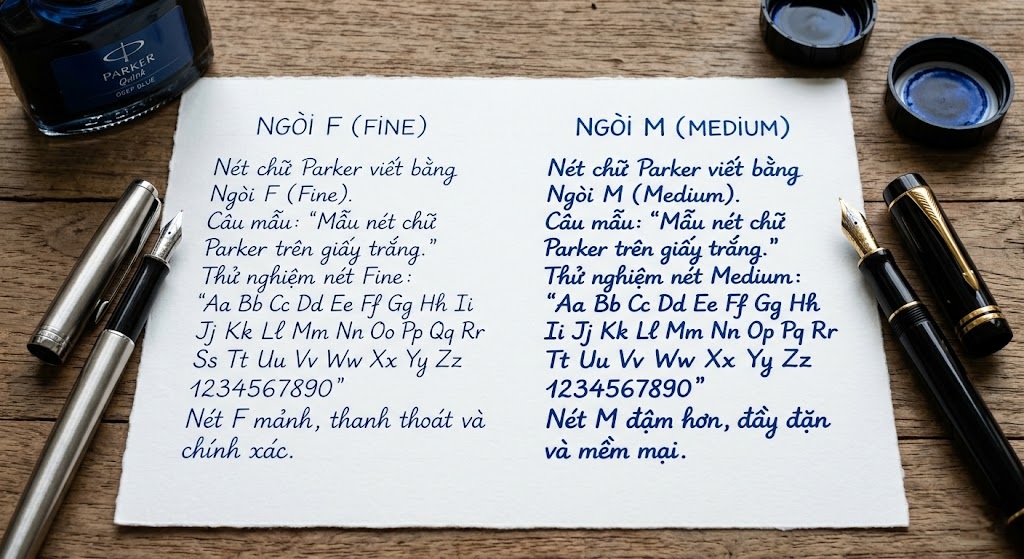 PARKER
Quink
DEEP BLUE
NGÒI F (FINE)
Nét chữ Parker viết bằng
Ngòi F (Fine).
Câu mẫu: “Mẫu nét chữ
Parker trên giấy trắng.”
Thử nghiệm nét Fine:
“Aa Bb Cc Dd Ee Ff Gg Hh Ii
Jj Kk Ll Mm Nn Oo Pp Qq Rr
Ss Tt Uu Vv Ww Xx Yy Zz
1234567890”
Nét F mảnh, thanh thoát và
chính xác.
NGÒI M (MEDIUM)
Nét chữ Parker viết bằng
Ngòi M (Medium).
Câu mẫu: “Mẫu nét chữ
Parker trên giấy trắng.”
Thử nghiệm nét Medium:
“Aa Bb Cc Dd Ee Ff Gg Hh
Ii Jj Kk Ll Mm Nn Op Pq Rr
Tt Uu Vv Ww Xx Yy Zz
1234567890”
Nét M đậm hơn, đầy đặn
và mềm mại.